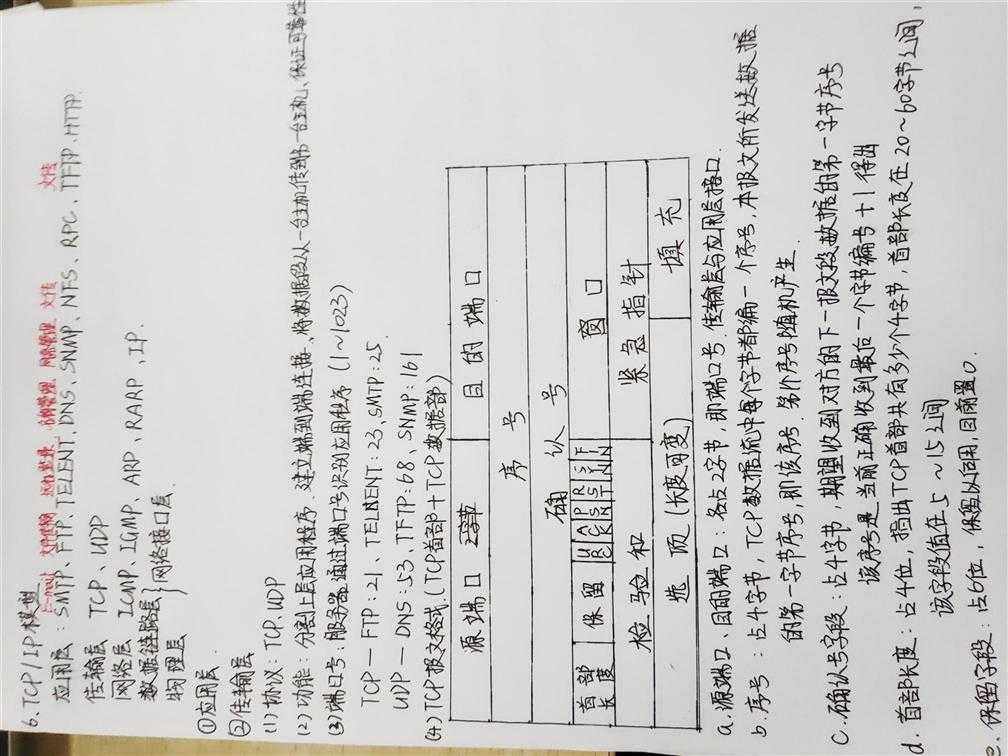 6. TCP/IP模型
E-mail 文件传输 远程登录 名称管理 网络管理 文传 文传
应用层 SMTP、FTP、TELENT、DNS、SNMP、NFS、RPC、TFTP、HTTP
传输层 TCP、UDP
网络层 ICMP、IGMP、ARP、RARP、IP.
数据链路层
物理层
}网络接口层
①应用层
②传输层
(1) 协议: TCP、UDP
(2) 功能: 分割上层应用程序、建立端到端连接、将数据段从一台主机传到另一台主机、保证可靠性
(3) 端口号: 服务器通过端口号识别应用程序 (1~1023)
TCP — FTP: 21、TELNENT: 23、SMTP: 25
UDP — DNS: 53、TFTP: 68、SNMP: 161
(4) TCP报文格式. (TCP首部+TCP数据部)
源端口 2字节 目的端口
序号
确认号
首部长度 保留 URG ACK PSH RST SYN FIN 窗口
检验和 紧急指针
选项 (长度可变) 填充
a. 源端口、目的端口: 各占2字节, 即端口号, 传输层与应用层接口.
b. 序号: 占4字节, TCP数据流中每个字节都编一个序号, 本报文所发送数据
的第一字节序号, 即该序号. 第1个序号随机产生
c. 确认号字段: 占4字节, 期望收到对方的下一报文段数据的第一字节序号
该序号是当前正确收到最后一个字节编号+1得出
d. 首部长度: 占4位, 指出TCP首部共有多少个4字节, 首部长度在20~60字节之间,
该字段值在5~15之间
e. 保留字段: 占6位, 保留以后用, 目前置0.